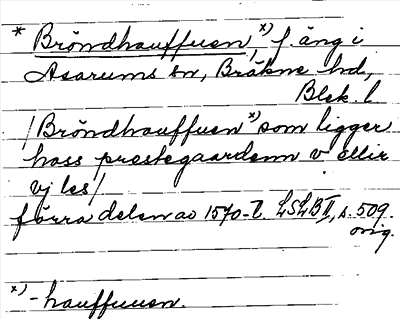 * Bröndhauffuen, *) f. äng i
Asarums sn, Bräkne hd,
Blek. l
/Bröndhauffuen *) som ligger
hass prestegaardenn v ellir
vj les/
förra delen av 1570-t. LSLB II, s. 509.
orig.
*) -hauffuuen.